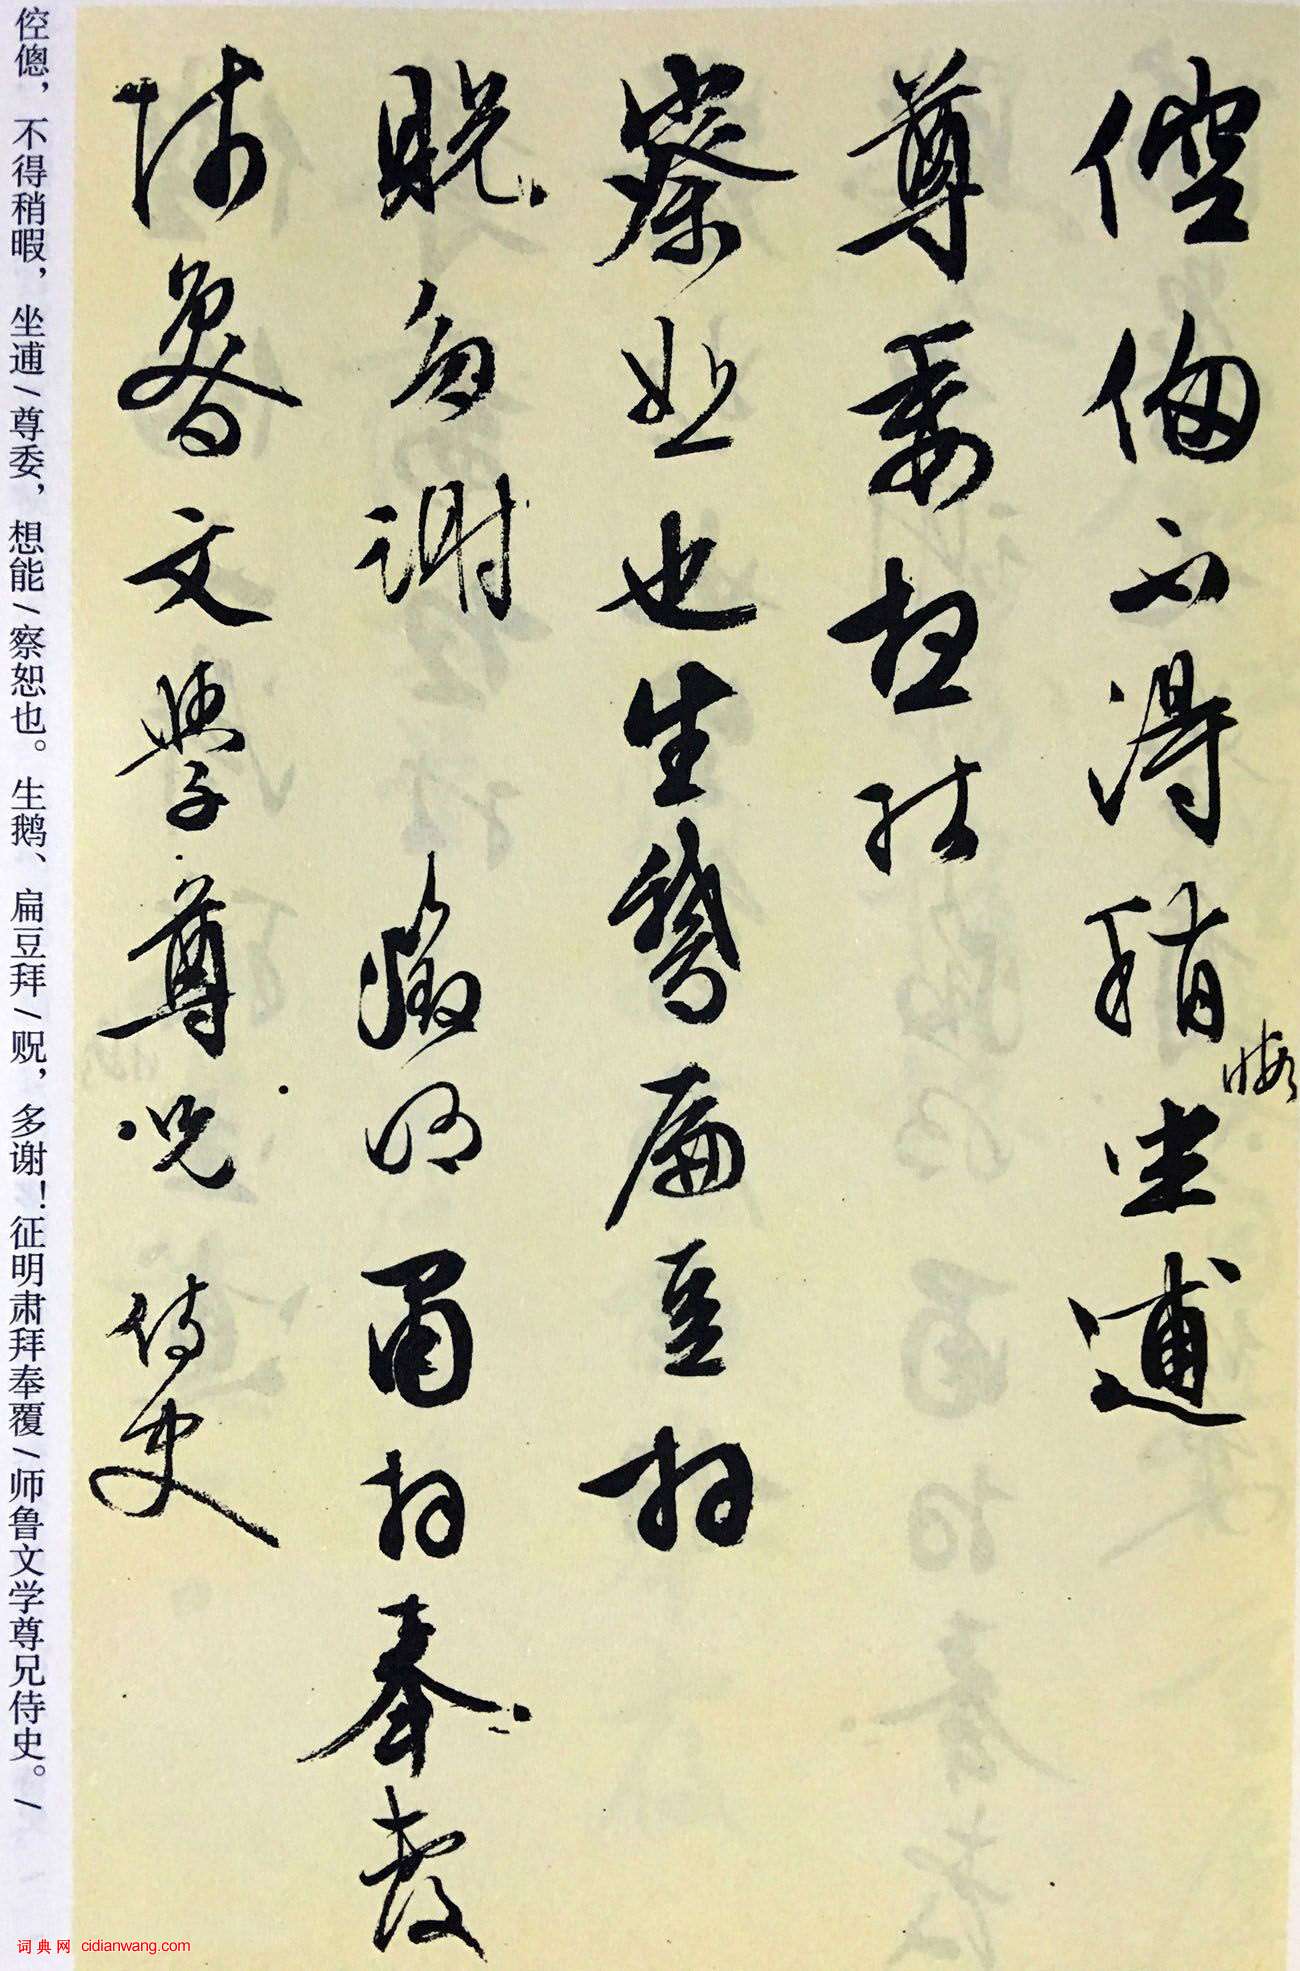 倥傯不得稍暇坐逋
尊委想能
察恕也生鵝扁豆拜
貺多謝徵明肅拜奉覆
師魯文學尊兄侍史
倥偬，不得稍暇，坐逋/尊委，想能/察恕也。生鹅、扁豆拜/贶，多谢！征明肃拜奉覆/师鲁文学尊兄侍史。/
词典网 cidianwang.com